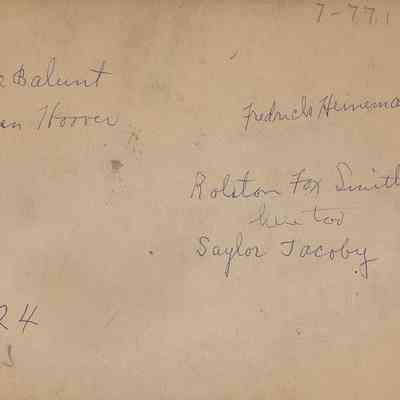 7-77.1
e Balunt
an Hoover
Fredrick Heinema
Rolston Fox Smith
here too
Saylor Jacoby
24